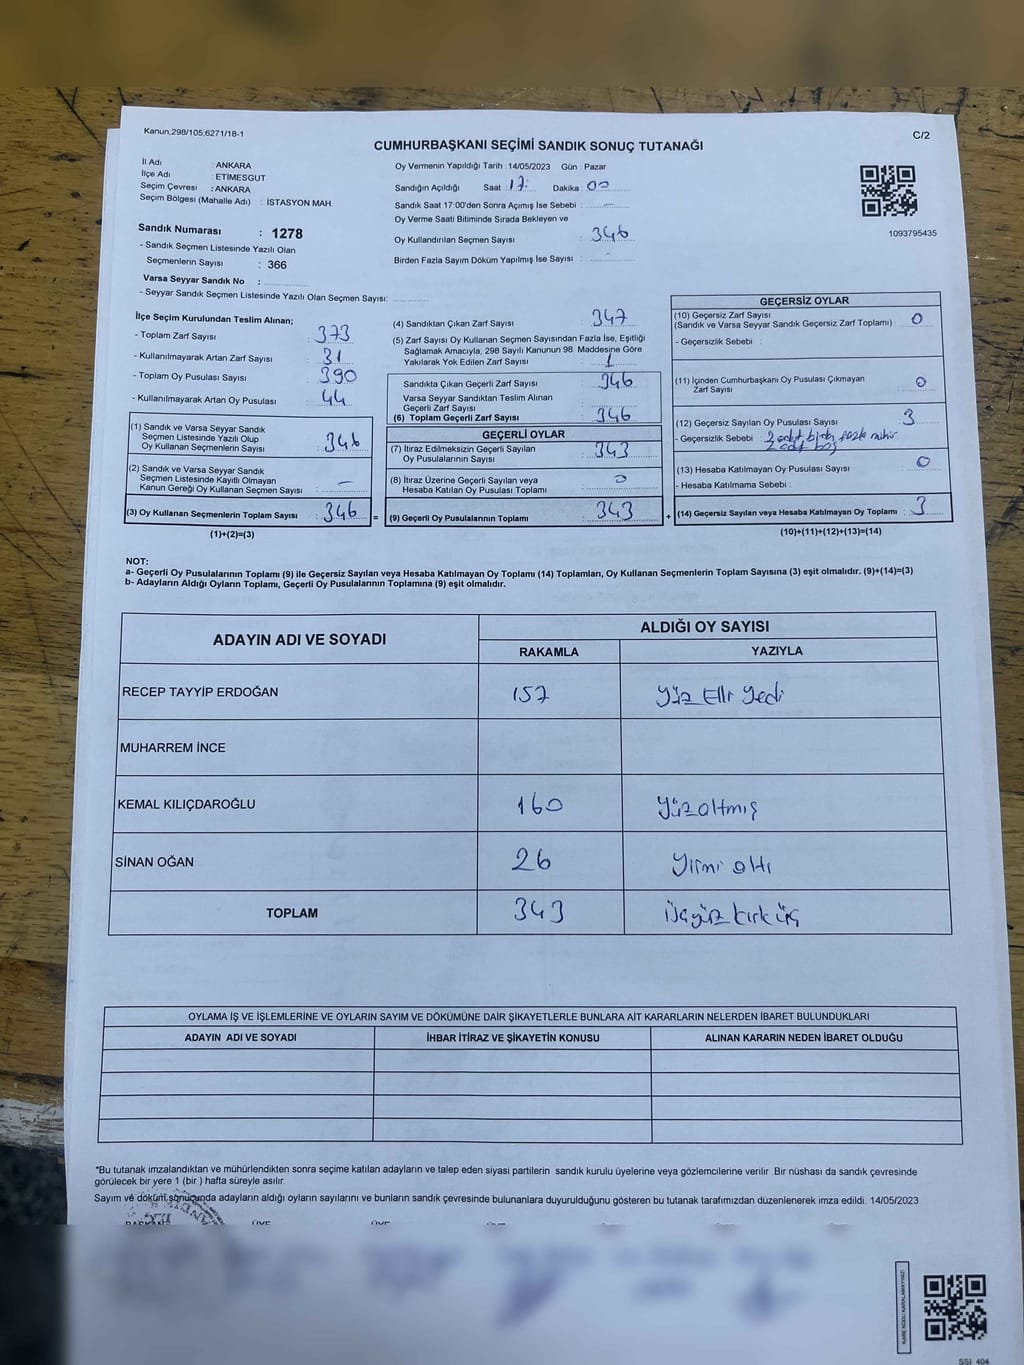 Kanun,298/105,6271/18-1
C/2
CUMHURBAŞKANI SEÇİMİ SANDIK SONUÇ TUTANAĞI
İl Adı : ANKARA
İlçe Adı : ETİMESGUT
Seçim Çevresi : ANKARA
Seçim Bölgesi (Mahalle Adı) : İSTASYON MAH.
Sandık Numarası : 1278
- Sandık Seçmen Listesinde Yazılı Olan
Seçmenlerin Sayısı : 366
Varsa Seyyar Sandık No :
- Seyyar Sandık Seçmen Listesinde Yazılı Olan Seçmen Sayısı:
Oy Vermenin Yapıldığı Tarih : 14/05/2023 Gün : Pazar
Sandığın Açıldığı Saat 17: Dakika 00
Sandık Saat 17:00'den Sonra Açımış İse Sebebi : -
Oy Verme Saati Bitiminde Sırada Bekleyen ve
Oy Kullandırılan Seçmen Sayısı : 346
Birden Fazla Sayım Döküm Yapılmış İse Sayısı : -
1093795435
İlçe Seçim Kurulundan Teslim Alınan;
- Toplam Zarf Sayısı : 373
- Kullanılmayarak Artan Zarf Sayısı : 31
- Toplam Oy Pusulası Sayısı : 390
- Kullanılmayarak Artan Oy Pusulası : 44
(1) Sandık ve Varsa Seyyar Sandık
Seçmen Listesinde Yazılı Olup
Oy Kullanan Seçmenlerin Sayısı : 346
(2) Sandık ve Varsa Seyyar Sandık
Seçmen Listesinde Kayıtlı Olmayan
Kanun Gereği Oy Kullanan Seçmen Sayısı : -
(3) Oy Kullanan Seçmenlerin Toplam Sayısı : 346 =
(1)+(2)=(3)
(4) Sandıktan Çıkan Zarf Sayısı : 347
(5) Zarf Sayısı Oy Kullanan Seçmen Sayısından Fazla İse, Eşitliği
Sağlamak Amacıyla; 298 Sayılı Kanunun 98. Maddesine Göre
Yakılarak Yok Edilen Zarf Sayısı : 1
Sandıkta Çıkan Geçerli Zarf Sayısı : 346
Varsa Seyyar Sandıktan Teslim Alınan
Geçerli Zarf Sayısı :
(6) Toplam Geçerli Zarf Sayısı : 346
GEÇERLİ OYLAR
(7) İtiraz Edilmeksizin Geçerli Sayılan
Oy Pusulalarının Sayısı : 343
(8) İtiraz Üzerine Geçerli Sayılan veya
Hesaba Katılan Oy Pusulası Toplamı : 0
(9) Geçerli Oy Pusulalarının Toplamı : 343 +
GEÇERSİZ OYLAR
(10) Geçersiz Zarf Sayısı
(Sandık ve Varsa Seyyar Sandık Geçersiz Zarf Toplamı) : 0
- Geçersizlik Sebebi :
(11) İçinden Cumhurbaşkanı Oy Pusulası Çıkmayan
Zarf Sayısı : 0
(12) Geçersiz Sayılan Oy Pusulası Sayısı : 3
- Geçersizlik Sebebi : 2 adet birden fazla mühür
2 adet boş
(13) Hesaba Katılmayan Oy Pusulası Sayısı : 0
- Hesaba Katılmama Sebebi :
(14) Geçersiz Sayılan veya Hesaba Katılmayan Oy Toplamı : 3
(10)+(11)+(12)+(13)=(14)
NOT:
a- Geçerli Oy Pusulalarının Toplamı (9) ile Geçersiz Sayılan veya Hesaba Katılmayan Oy Toplamı (14) Toplamları, Oy Kullanan Seçmenlerin Toplam Sayısına (3) eşit olmalıdır. (9)+(14)=(3)
b- Adayların Aldığı Oyların Toplamı, Geçerli Oy Pusulalarının Toplamına (9) eşit olmalıdır.
ADAYIN ADI VE SOYADI ALDIĞI OY SAYISI
RAKAMLA YAZIYLA
RECEP TAYYİP ERDOĞAN 157 Yüz Elli Yedi
MUHARREM İNCE
KEMAL KILIÇDAROĞLU 160 Yüzaltmış
SİNAN OĞAN 26 Yirmi altı
TOPLAM 343 Üçyüz kırk üç
OYLAMA İŞ VE İŞLEMLERİNE VE OYLARIN SAYIM VE DÖKÜMÜNE DAİR ŞİKAYETLERLE BUNLARA AİT KARARLARIN NELERDEN İBARET BULUNDUKLARI
ADAYIN ADI VE SOYADI İHBAR İTİRAZ VE ŞİKAYETİN KONUSU ALINAN KARARIN NEDEN İBARET OLDUĞU
*Bu tutanak imzalandıktan ve mühürlendikten sonra seçime katılan adayların ve talep eden siyasi partilerin sandık kurulu üyelerine veya gözlemcilerine verilir. Bir nüshası da sandık çevresinde
görülecek bir yere 1 (bir ) hafta süreyle asılır.
Sayım ve döküm sonucunda adayların aldığı oyların sayılarını ve bunların sandık çevresinde bulunanlara duyurulduğunu gösteren bu tutanak tarafımızdan düzenlenerek imza edildi. 14/05/2023
SSI 404